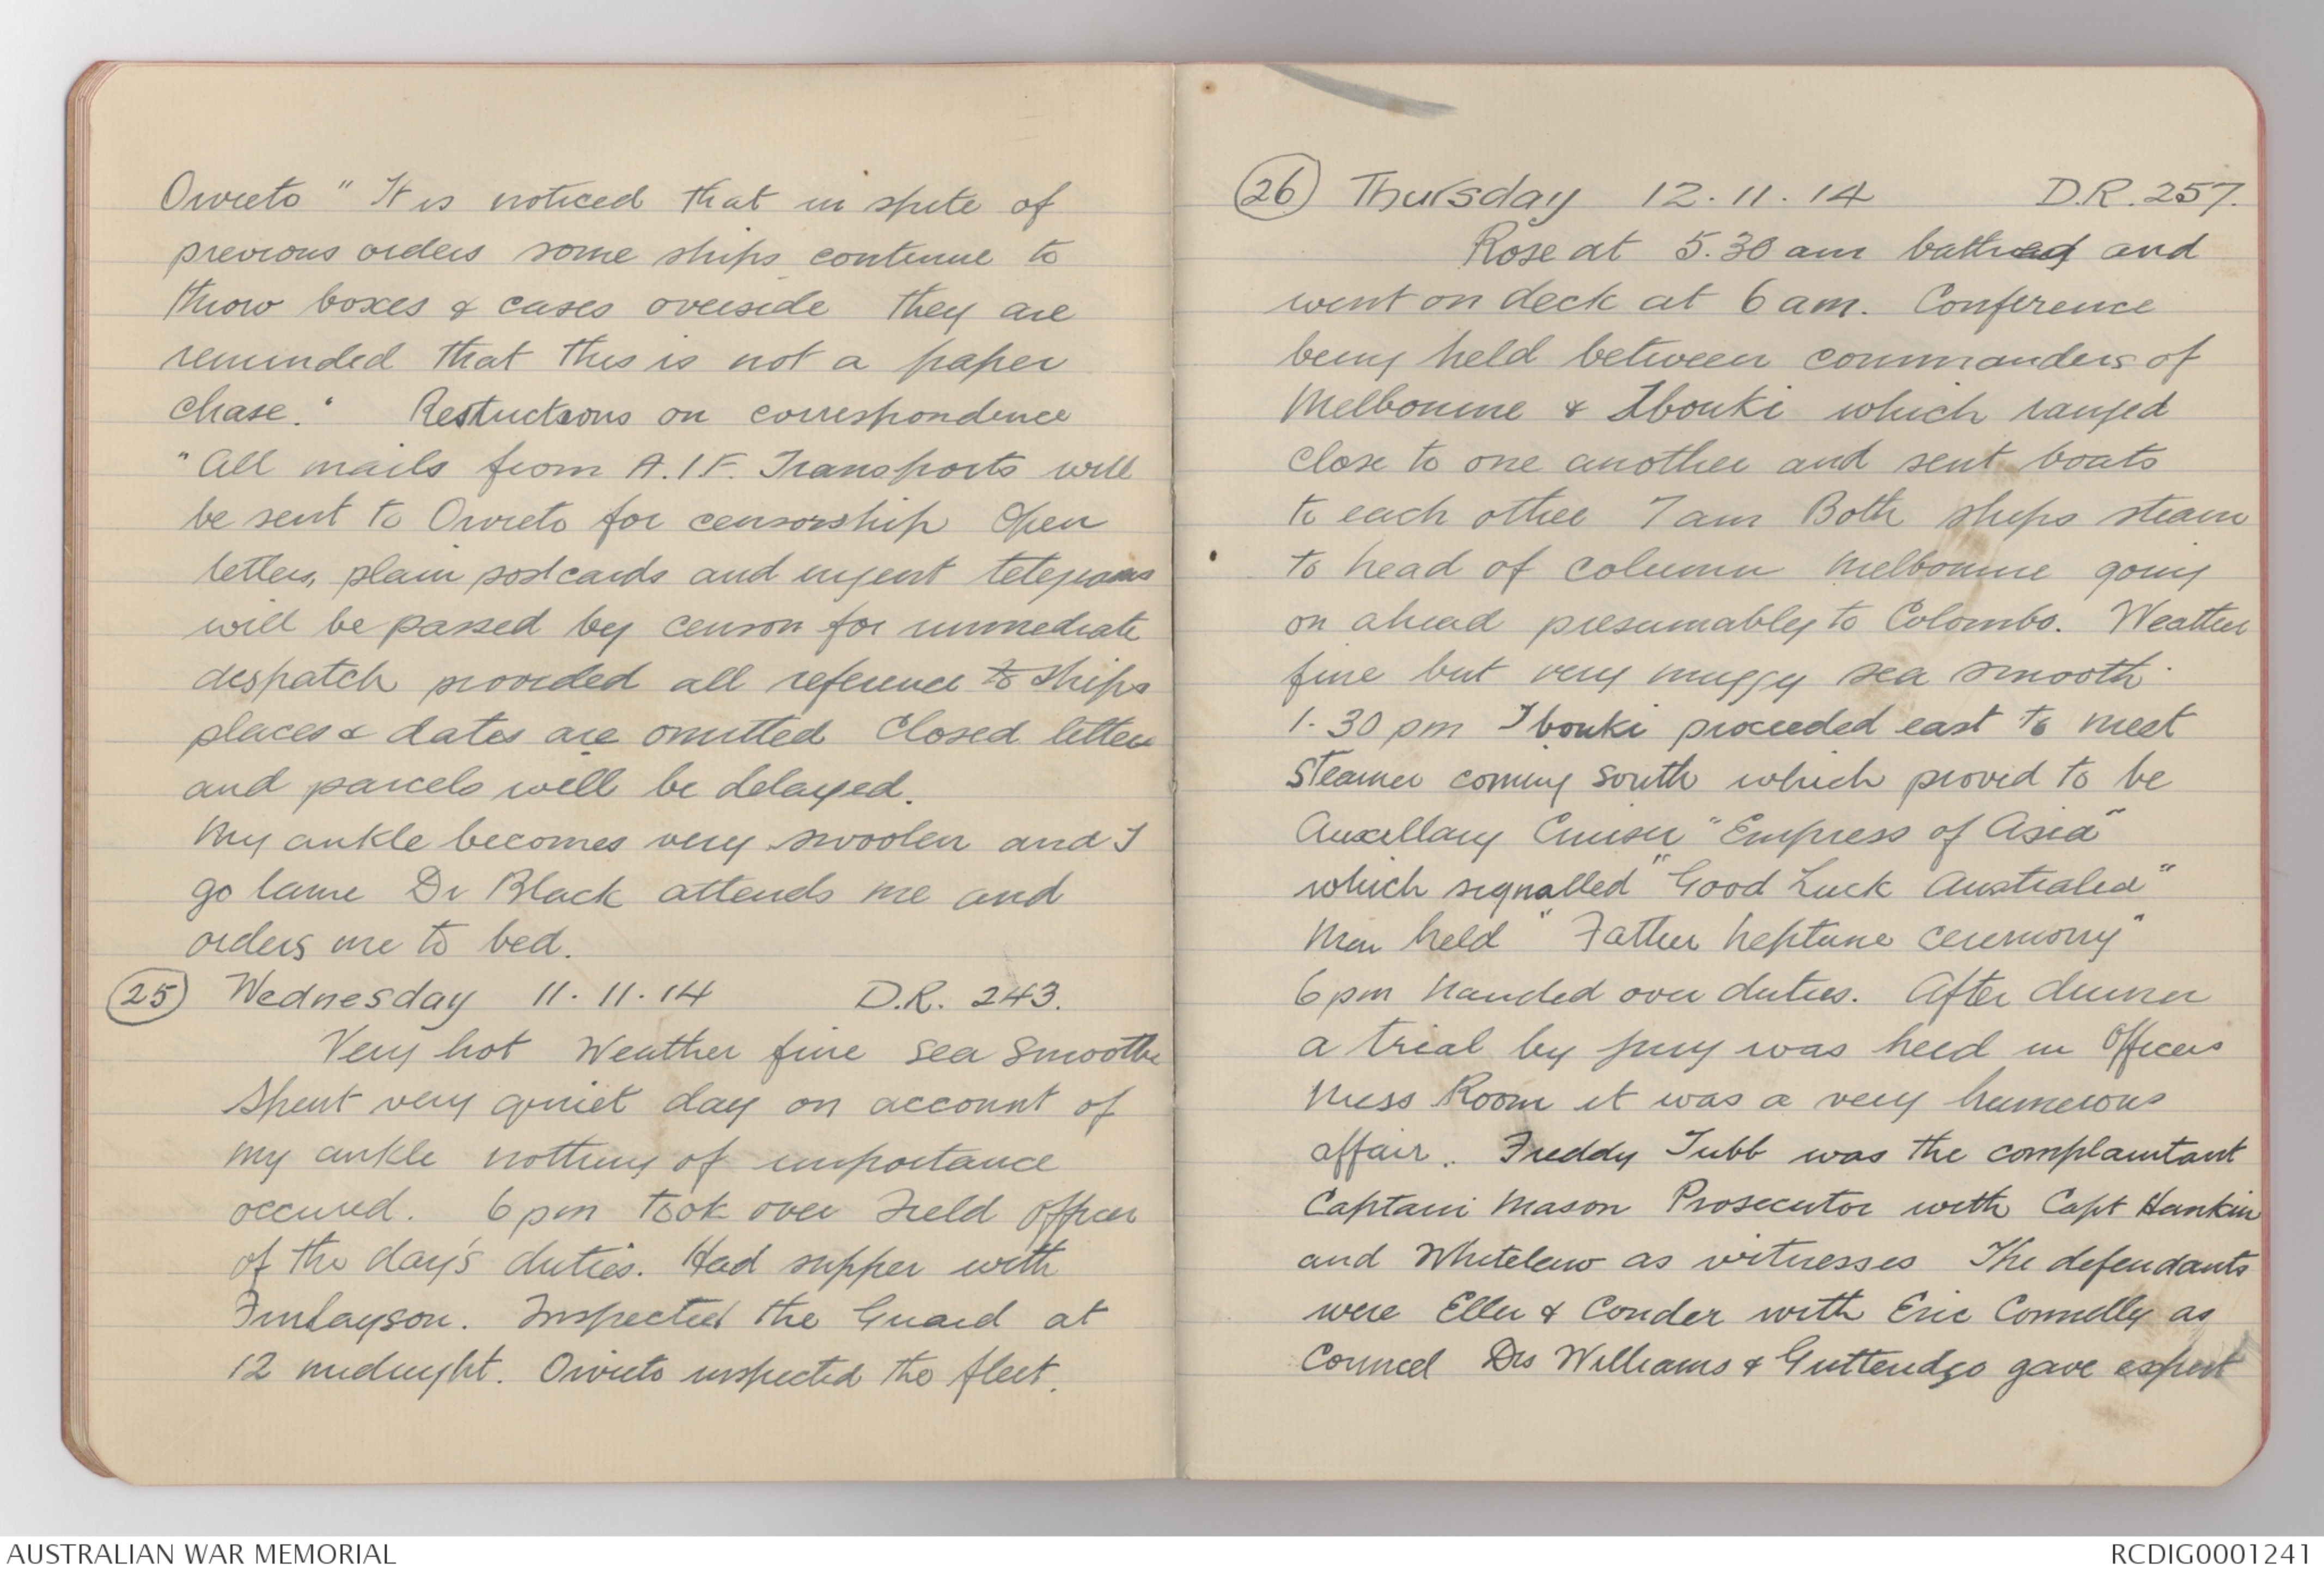 Orvieto " It is noticed that in spite of
previous orders some ships continue to
throw boxes & cases overside they are
reminded that this is not a paper
chase." Restructions on correspondence
"All mails from A.I.F. Transports will
be sent to Orvieto for censorship Open
letters, plain postcards and urgent telegrams
will be passed by censor for immediate
despatch provided all reference to ships
places & dates are omitted Closed letters
and parcels will be delayed.
My ankle becomes very swoolen and I
go lame Dr Black attends me and
orders me to bed.
(25) Wednesday 11.11.14 D.R. 243.
Very hot Weather fine sea smooth
Spent very quiet day on account of
my ankle nothing of importance
occured. 6 pm took over Field Officer
of the day's duties. Had supper with
Finlayson. Inspected the Guard at
12 midnight. Orvieto inspected the fleet.
(26) Thursday 12.11.14 D.R. 257.
Rose at 5.30 am bathed and
went on deck at 6 am. Conference
being held between commanders of
Melbourne & Ibouki which ranged
close to one another and sent boats
to each other 7 am Both ships steam
to head of column Melbourne going
on ahead presumably to Colombo. Weather
fine but very muggy sea smooth.
1.30 pm Ibouki proceeded east to meet
Steamer coming south which proved to be
Auxillary Cruiser "Empress of Asia"
which signalled "Good Luck Australia"
Men held "Father Neptune ceremony"
6 pm handed over duties. After dinner
a trial by jury was held in Officers
Mess Room it was a very humerous
affair. Freddy Tubb was the complaintant
Captain Mason Prosecutor with Capt Hankin
and Whitelaw as witnesses The defendants
were Eller & Conder with Eric Connelly as
Councel Drs Williams & Guttendge gave expert
AUSTRALIAN WAR MEMORIAL
RCDIG0001241